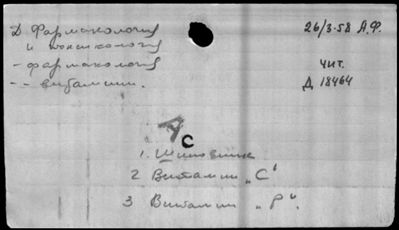 Д. Фармакология
и токсикология
- фармакология
- - витамин.
26/3-58 А.Ф.
чит.
Д 18464
А
С
1. Шиповник
2 Витамин „С“
3 Витамин „Р“.